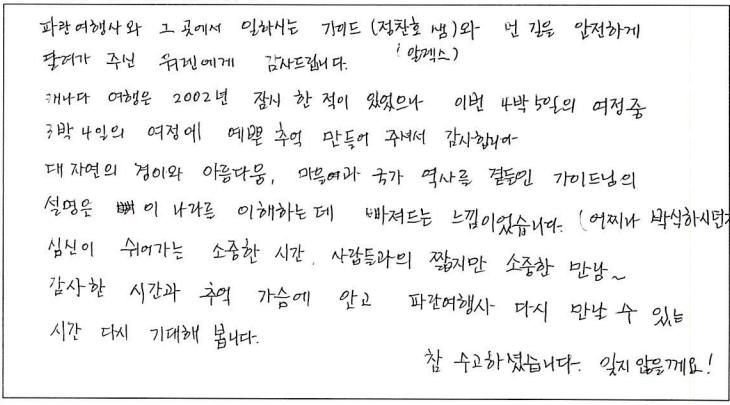 파란여행사와 그 곳에서 일하시는 가이드 (정찬호 쌤)와 먼 길을 안전하게
(알렉스)
달려가 주신 유겐에게 감사드립니다.
캐나다 여행은 2002년 잠시 한 적이 있었으나 이번 4박5일의 여정중
3박4일의 여정에 예쁜 추억 만들어 주셔서 감사합니다
대자연의 경이와 아름다움, 마을여과 국가 역사를 곁들인 가이드님의
설명은 이 나라를 이해하는데 빠져드는 느낌이었습니다. (어찌나 박식하시던지
심신이 쉬어가는 소중한 시간. 사람들과의 짧지만 소중한 만남~
감사한 시간과 추억 가슴에 안고 파란여행사 다시 만날 수 있는
시간 다시 기대해 봅니다.
참 수고하셨습니다. 잊지 않을께요!